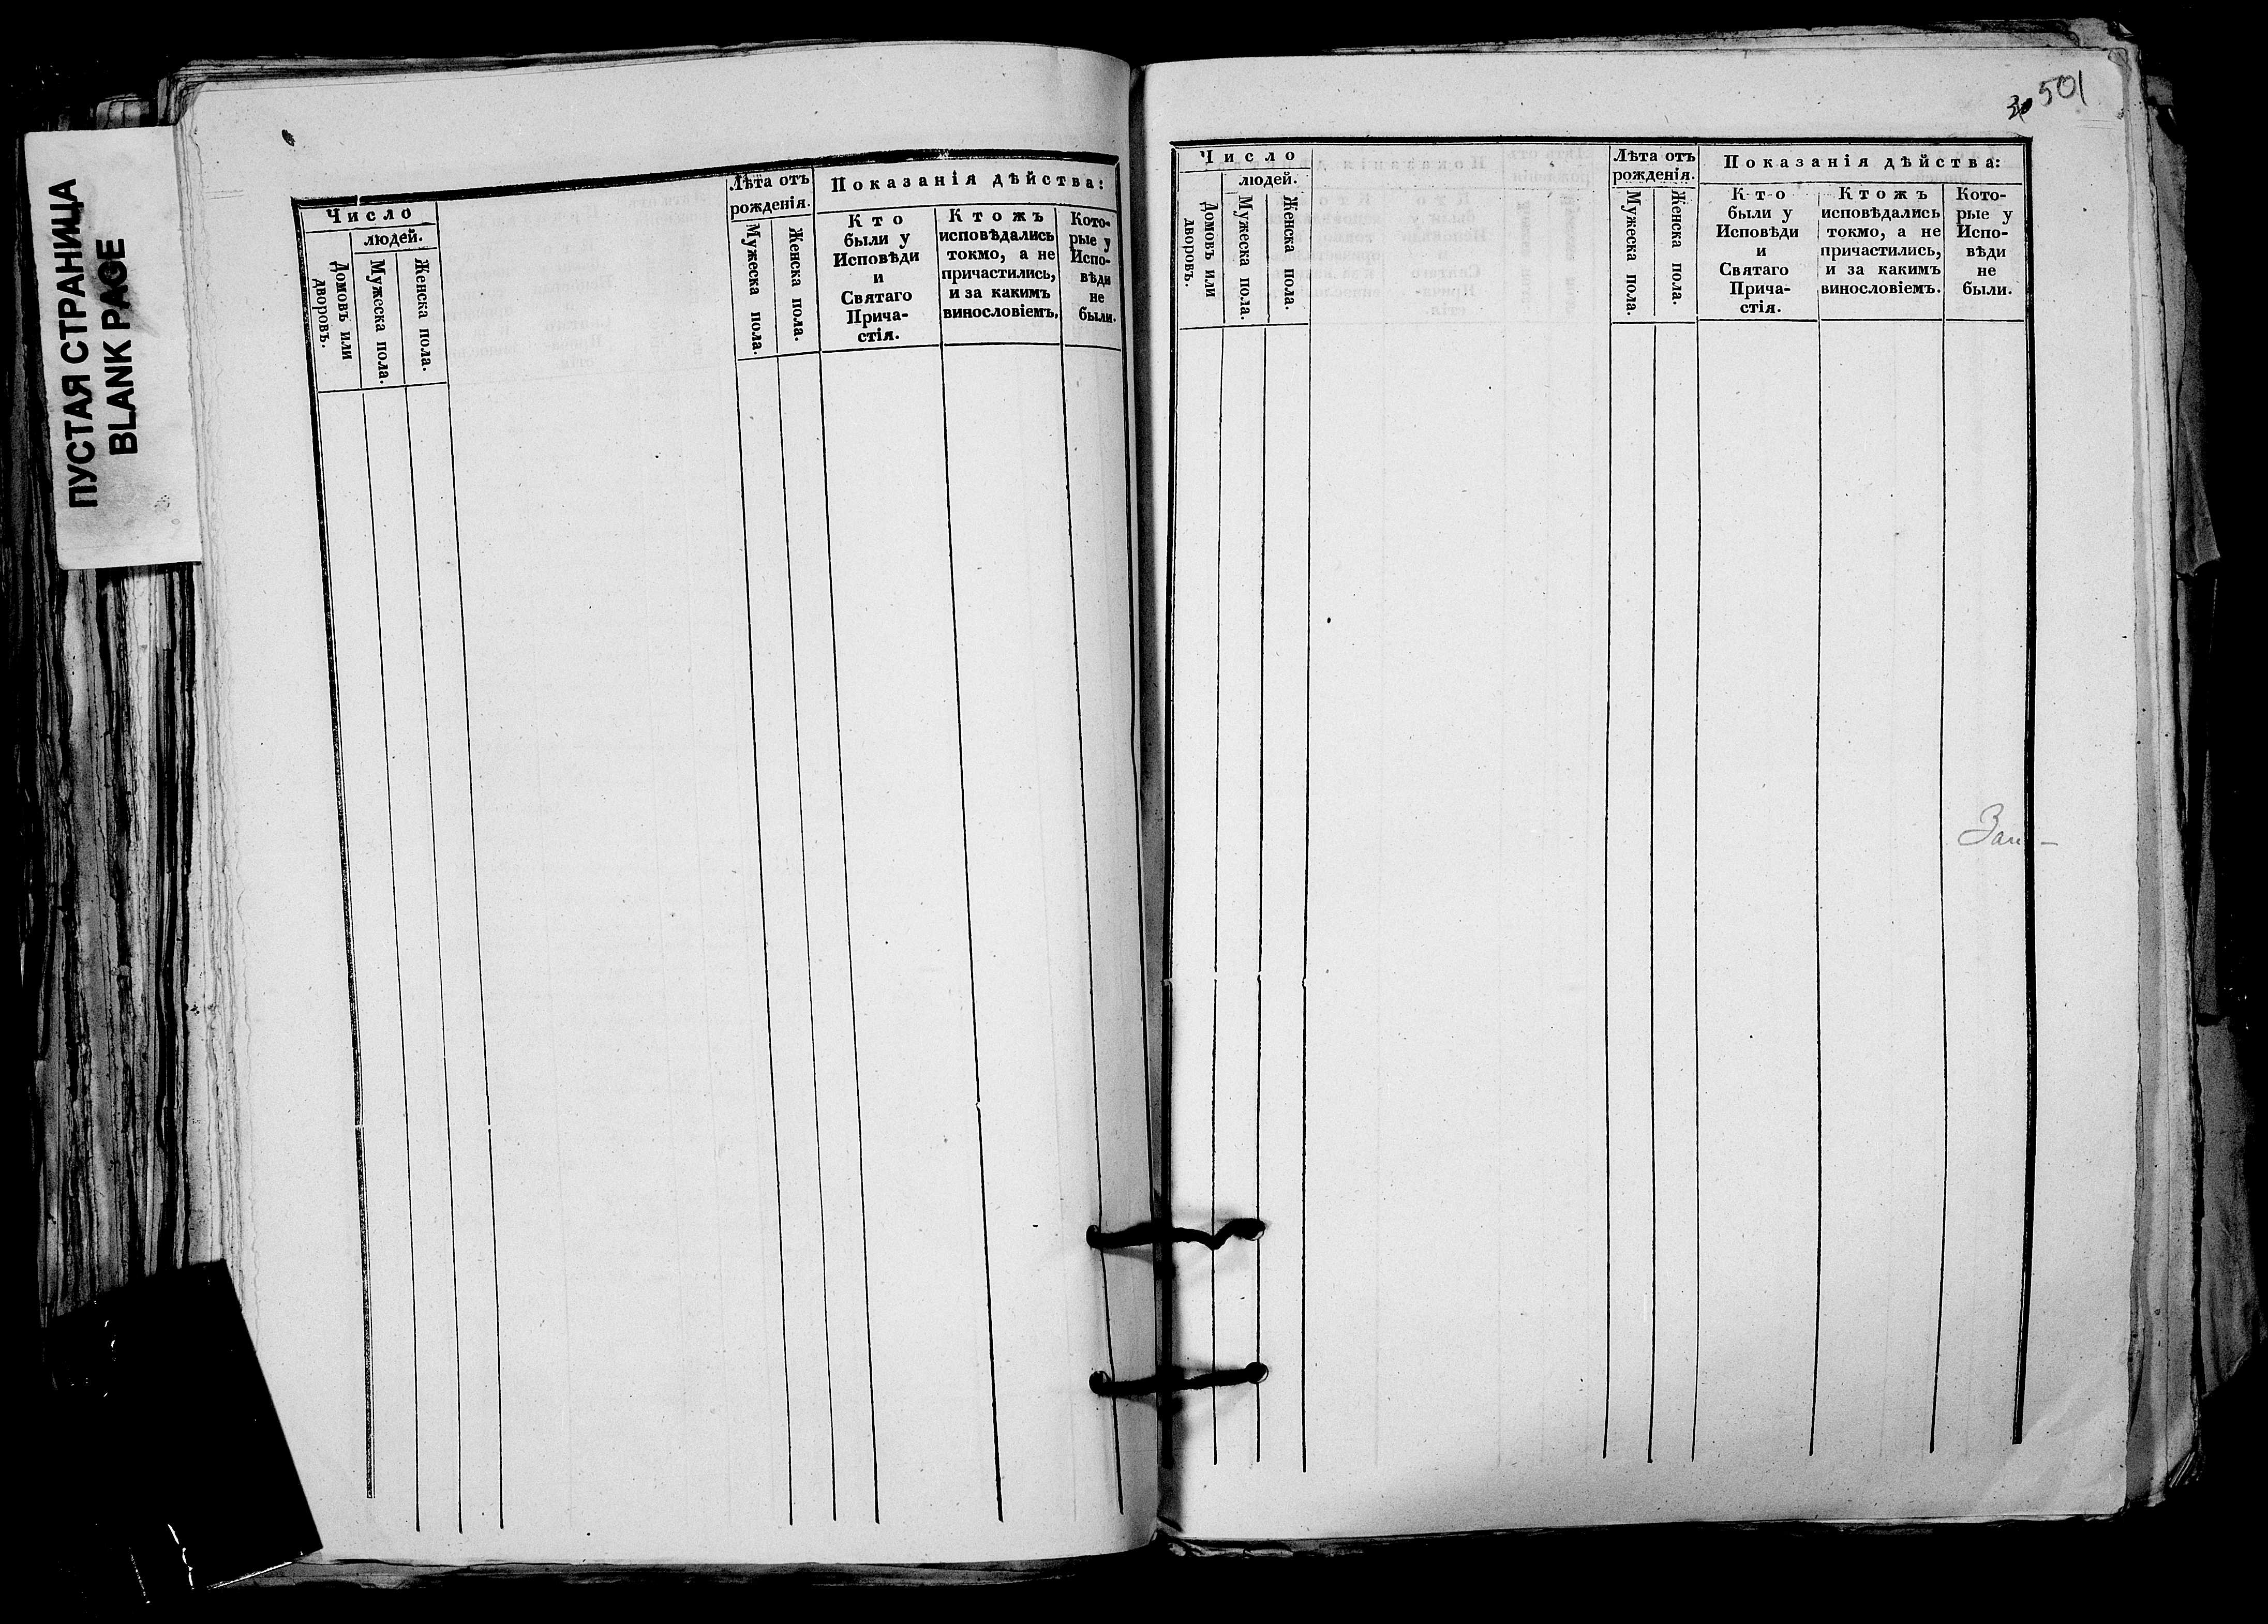 ПУСТАЯ СТРАНИЦА
BLANK PAGE
Число
людей.
Домовъ или дворовъ.
Мужеска пола.
Женска пола.
Лѣта отъ
рожденія.
Мужеска пола.
Женска пола.
Показанія дѣйства:
Кто
были у
Исповѣди
и
Святаго
Прича-
стія.
Ктожъ
исповѣдались
токмо, а не
причастились,
и за какимъ
винословіемъ.
Кото-
рые у
Испо-
вѣди
не
были.
501
Число
людей.
Домовъ или дворовъ.
Мужеска пола.
Женска пола.
Лѣта отъ
рожденія.
Мужеска пола.
Женска пола.
Показанія дѣйства:
Кто
были у
Исповѣди
и
Святаго
Прича-
стія.
Ктожъ
исповѣдались
токмо, а не
причастились,
и за какимъ
винословіемъ.
Кото-
рые у
Испо-
вѣди
не
были.